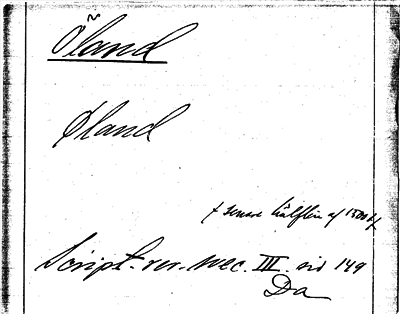 Öland
Øland
f senare hälften af 1500 t.
Script. rer. svec. III. sid 149
Da